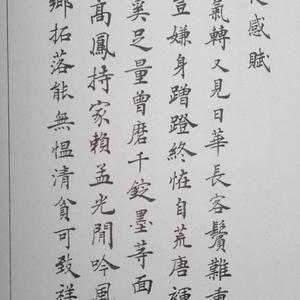 感賦
氣轉又見日華長客鬢難重
豈嫌身蹭蹬終怪自荒唐褌
奚足量曾磨千錠墨莠面
高鳳持家賴孟光閒吟風
鄉拓落能無愠清貧可致祥